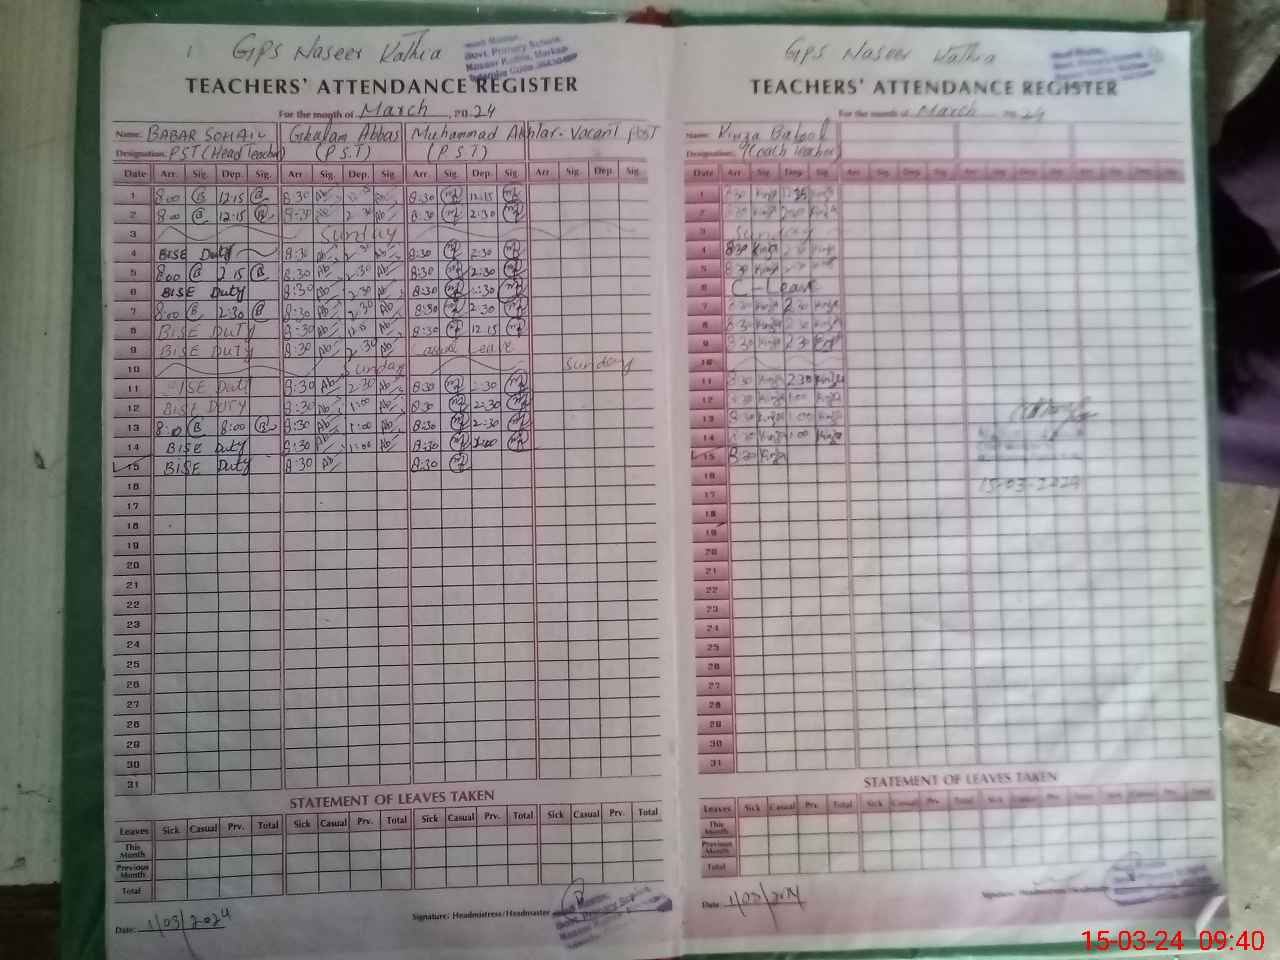 1 GPS Naseer Kathia
TEACHERS' ATTENDANCE REGISTER
For the month of March, 20 24
Name: BABAR SOHAIL Ghulam Abbas Muhammad Akhtar - Vacant Post
Designation: PST (Head Teacher) (P.S.T) (P.S.T)
Date Arr. Sig. Dep. Sig. Arr. Sig. Dep. Sig. Arr. Sig. Dep. Sig. Arr. Sig. Dep. Sig.
1 8:00 B 12:15 B 8:30 Ab 8:30 12:15
2 8:00 B 12:15 B 8:30 Ab 2:30 Ab 8:30 2:30
3 Sunday
4 BISE Duty 8:30 Ab 2:30 Ab 8:30 2:30
5 8:00 B 2:15 B 8:30 Ab 2:30 Ab 8:30 2:30
6 BISE Duty 8:30 Ab 2:30 Ab 8:30 2:30
7 8:00 B 2:30 B 8:30 Ab 2:30 Ab 8:30 2:30
8 BISE DUTY 8:30 Ab 12:15 Ab 8:30 12:15
9 BISE DUTY 8:30 Ab 2:30 Ab Casual Leave
10 Sunday Sunday
11 BISE Duty 8:30 Ab 2:30 Ab 8:30 2:30
12 BISE DUTY 8:30 Ab 1:00 Ab 8:30 2:30
13 8:00 B 8:00 B 8:30 Ab 1:00 Ab 8:30 2:30
14 BISE Duty 8:30 Ab 1:00 Ab 8:30 1:00
15 BISE Duty 8:30 Ab 8:30
16
17
18
19
20
21
22
23
24
25
26
27
28
29
30
31
STATEMENT OF LEAVES TAKEN
Leaves Sick Casual Prv. Total Sick Casual Prv. Total Sick Casual Prv. Total Sick Casual Prv. Total
This Month
Previous Month
Total
Date: 1/03/2024 Signature: Headmistress/Headmaster
GPS Naseer Kathia
TEACHERS' ATTENDANCE REGISTER
For the month of March 20 24
Name: Kinza Batool
Designation: (Coach Teacher)
Date Arr. Sig. Dep. Sig. Arr. Sig. Dep. Sig. Arr. Sig. Dep. Sig.
1 8:30 Kinza Kinza
2 8:30 Kinza Kinza
3 Sunday
4 8:30 Kinza 2:30 Kinza
5 8:30 Kinza 2:30 Kinza
6 C-Leave
7 8:30 Kinza 2:30 Kinza
8 8:30 Kinza 2:30 Kinza
9 8:30 Kinza 2:30 Kinza
10
11 8:30 Kinza 2:30 Kinza
12 8:30 Kinza 1:00 Kinza
13 8:30 Kinza 1:00 Kinza
14 8:30 Kinza 1:00 Kinza
15 8:30 Kinza
16
15-03-2024
17
18
19
20
21
22
23
24
25
26
27
28
29
30
31
STATEMENT OF LEAVES TAKEN
Leaves Sick Casual Prv. Total Sick Casual Prv. Total Sick
This Month
Previous Month
Total
Date 1/03/2024 Signature: Headmistress/Headmaster
15-03-24 09:40